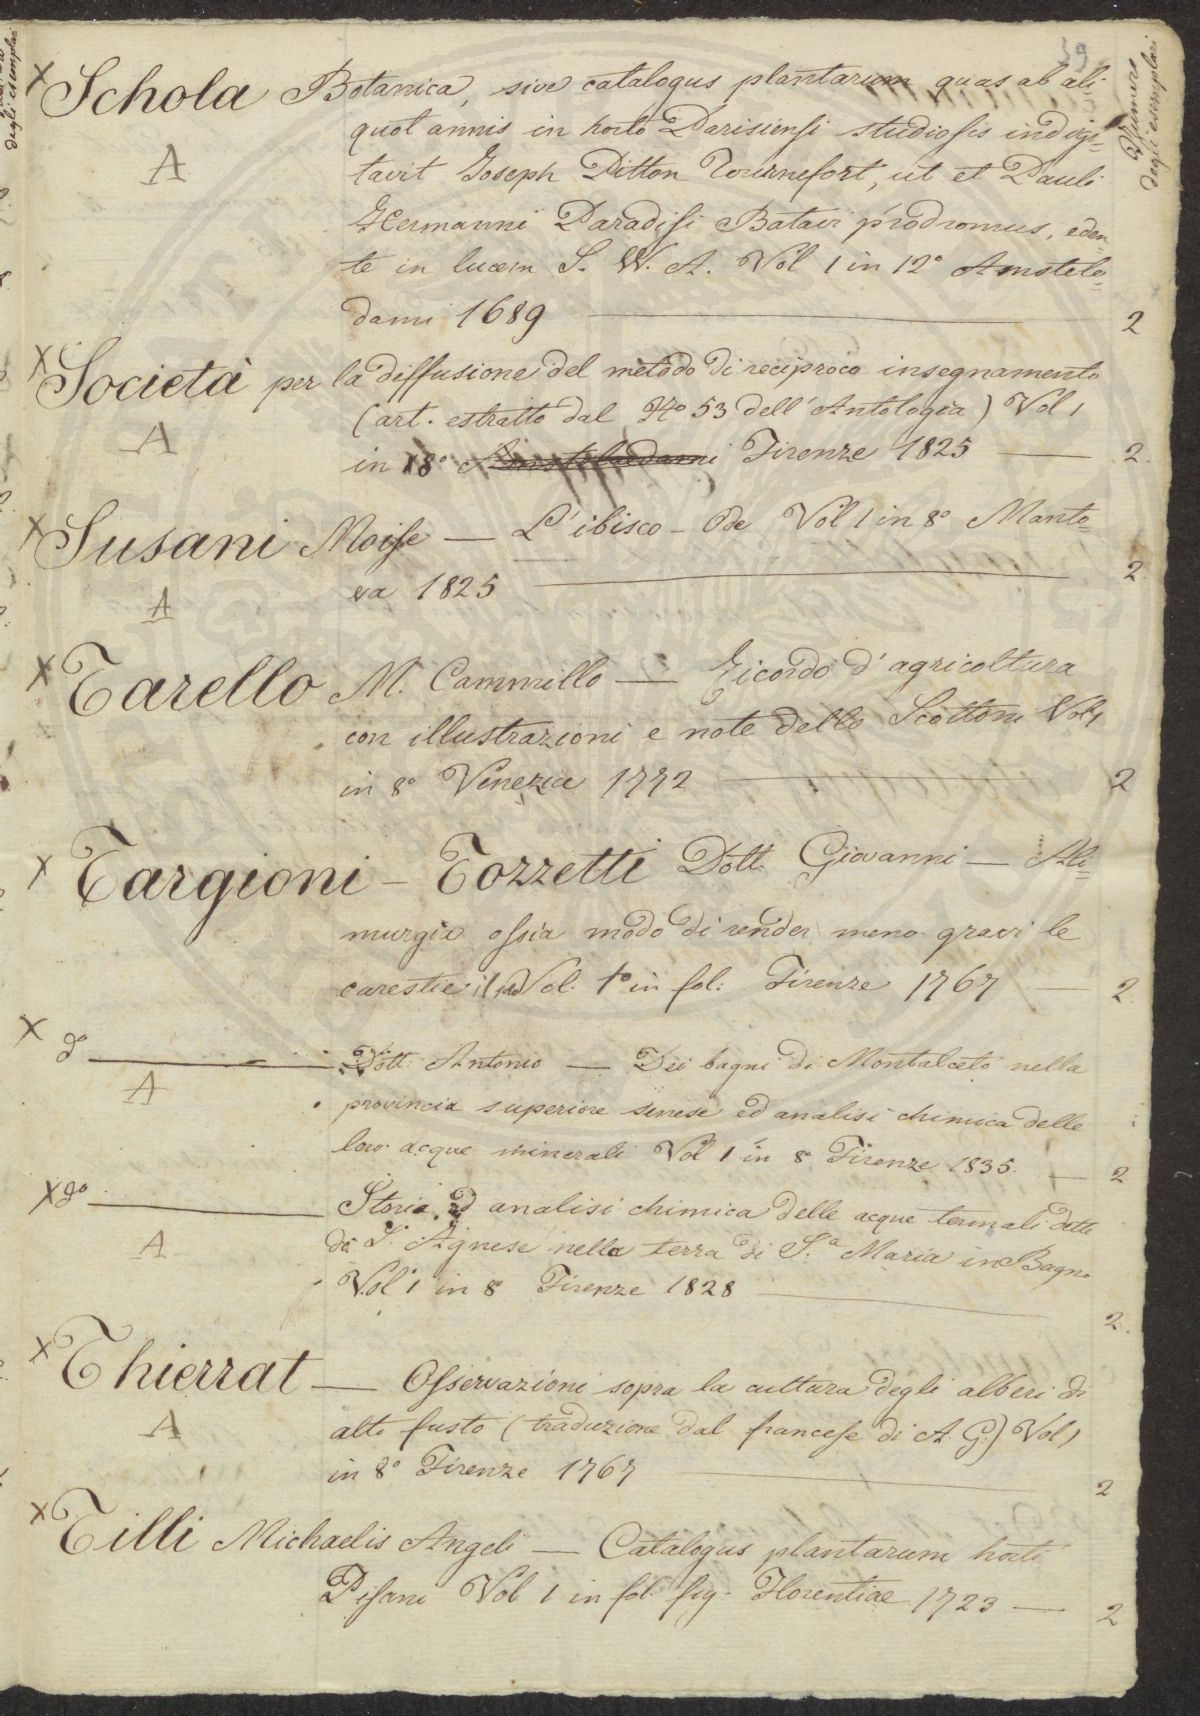 59
Numero
degli esemplari
degli esemplari
X Schola Botanica, sive catalogus plantarum quas ab ali
quot annis in horto Parisiensi studiosis indigi=
A
tavit Joseph Pitton Tournefort, ut et Pauli
Hermanni Paradisi Batavi prodromus, eden=
te in lucem S. W. A. Vol 1 in 12° Amstelo=
dami 1689 2
X Società per la diffusione del metodo di reciproco insegnamento
(art. estratto dal N° 53 dell'Antologia) Vol 1
A
in 8° Amstelaedami Firenze 1825 — 2.
X Susani Moise — L'ibisco - Ode Vol 1 in 8° Manto=
va 1825 2.
A
X Tarello M. Cammillo — Ricordo d'agricoltura
con illustrazioni e note dello Scottoni Vol 1
in 8° Venezia 1772 2
X Targioni - Tozzetti Dott. Giovanni — Ali=
murgia ossia modo di render meno gravi le
carestie il Vol. 1° in fol: Firenze 1767 — 2.
X d° Dott. Antonio — Dei bagni di Montalceto nella
A
provincia superiore senese ed analisi chimica delle
loro acque minerali Vol 1 in 8° Firenze 1835. — 2
X d° Storia ed analisi chimica delle acque termali dette
A
di S. Agnese nella terra di S.a Maria in Bagno
Vol 1 in 8° Firenze 1828 2.
X Thierrat — Osservazioni sopra la cultura degli alberi di
A
alto fusto (traduzione dal francese di A. G.) Vol 1
in 8° Firenze 1767 2
X Tilli Michaelis Angeli — Catalogus plantarum horti
Pisani Vol 1 in fol. fig. Florentiae 1723 — 2